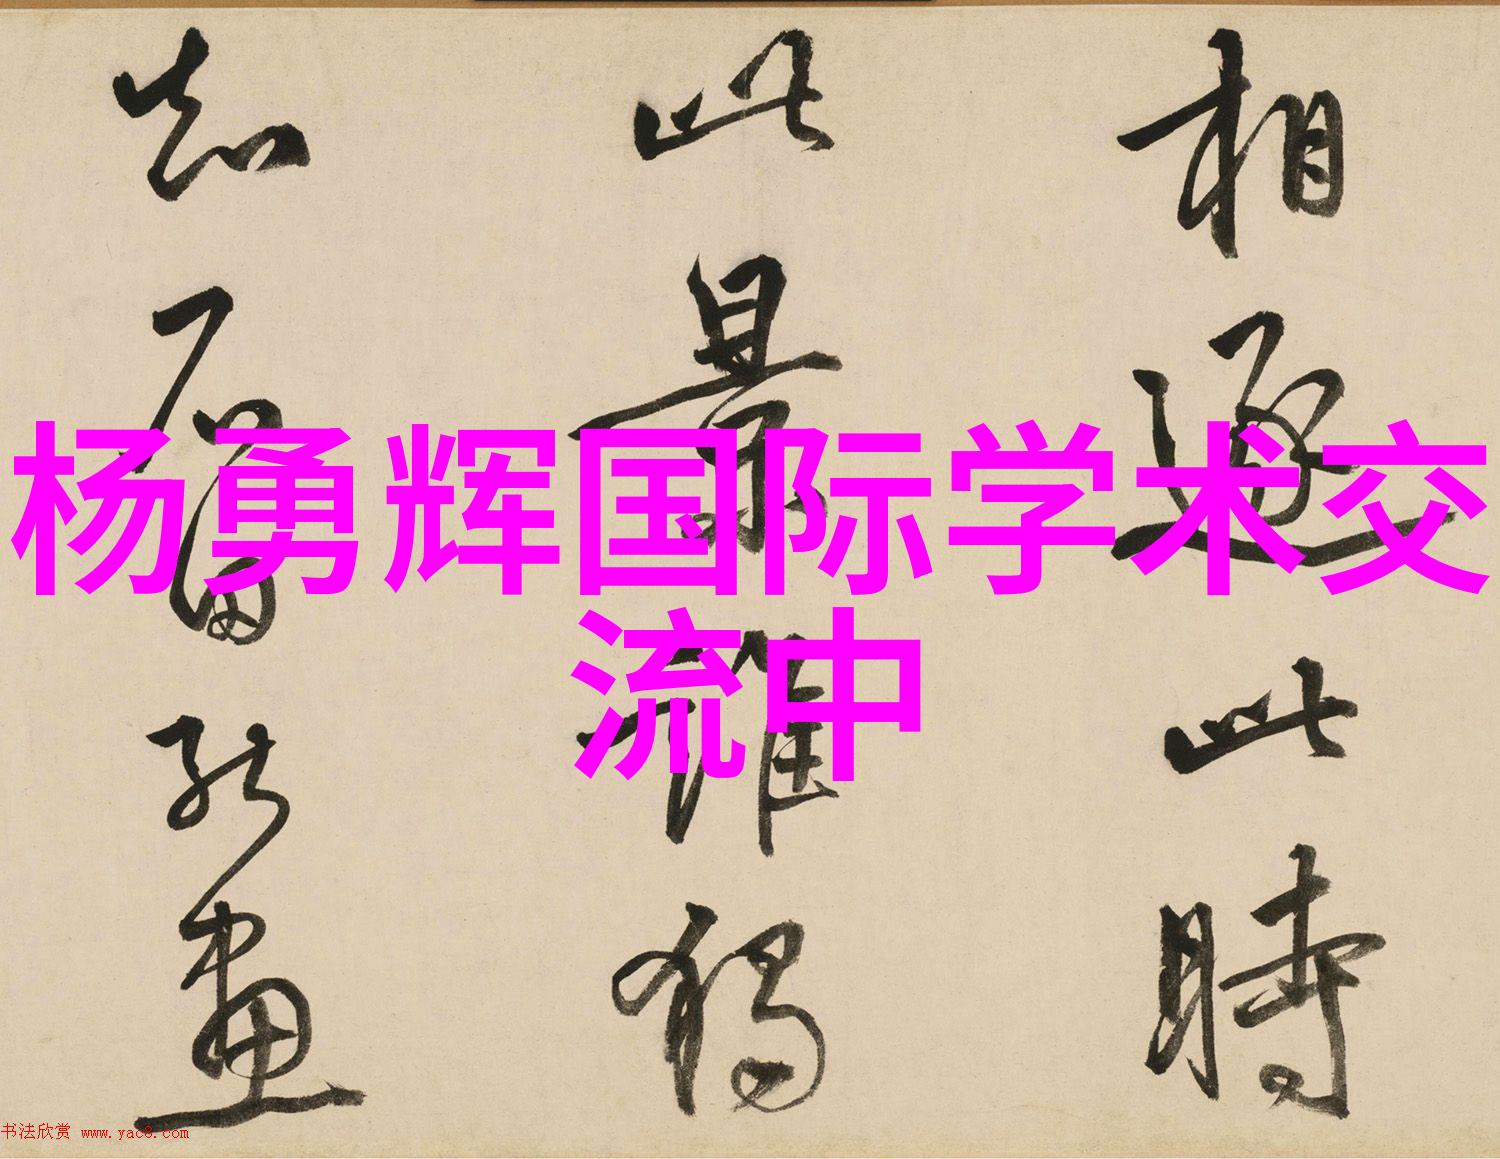 相逐此時
此景誰獨
知石田能畫
杨勇辉国际学术交
流中
书法欣赏 www.yac8.com